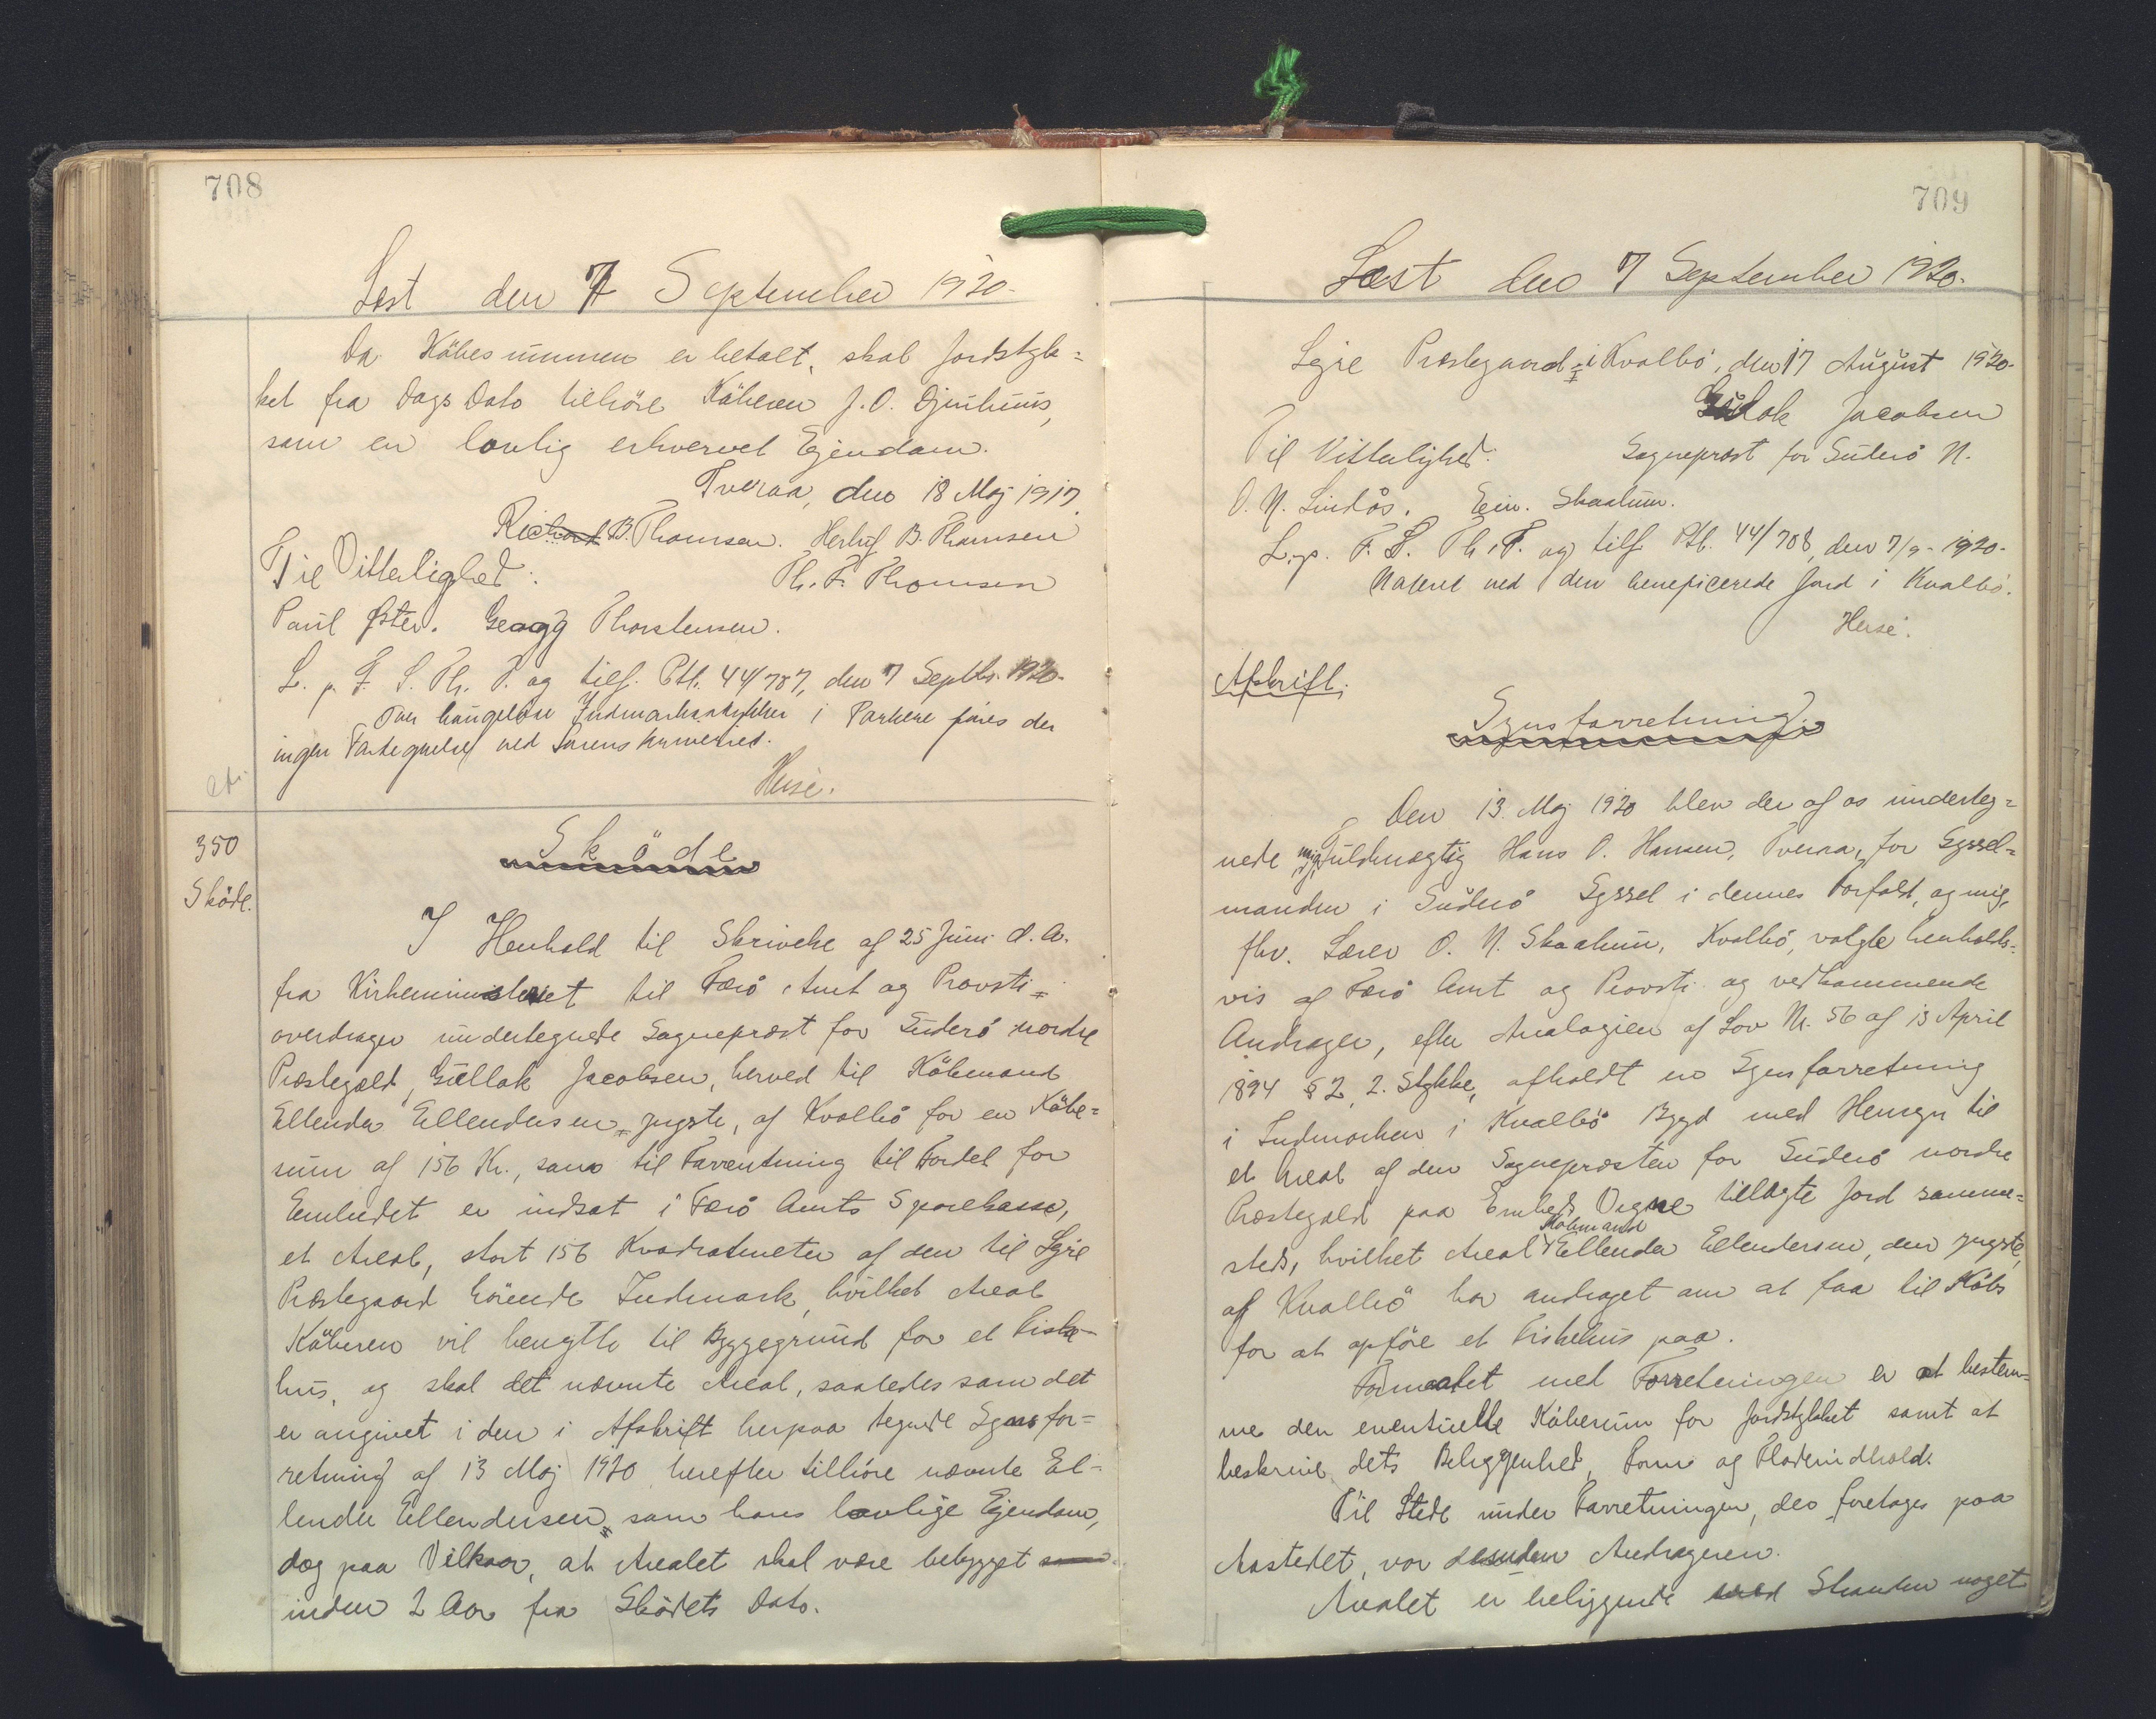 708
Læst den 7 September 1920.
Da Köbesummen er betalt, skal Jordstyk=
ket fra Dags Dato tilhöre Köberen J. O. Djurhuus,
som en lovlig erhvervet Ejendom.
Tveraa, den 18 Maj 1917.
Richard B. Thomsen. Herluf B. Thomsen
Til Vitterlighed: Th. F. Thomsen
Poul Øster. Georg Thorstensen.
L. p. F. S. Th. T. og tilf. Ptb. 44/707, den 7 Septbr. 1920.
Over haugeløse Indmarksstykker i Parkere föres der
ingen Fortegnelse ved Sorenskriveriet.
Heise.
350
Sköde.
Sköde
I Henhold til Skrivelse af 25 Juni d. A.
fra Kirkeministeriet til Færö Amt og Provsti=
overdrager undertegnede Sognepræst for Suderö nordre
Præstegæld, Gullak Jacobsen, herved til Köbmand
Ellender Ellendersen, yngste, af Kvalbö for en Köbe=
sum af 156 Kr., som til Forrentning til Fordel for
Embedet er indsat i Færö Amts Sparekasse,
et Areal, stort 156 Kvadratmeter af den til Sejre
Præstegaard hörende Indmark, hvilket Areal
Köberen vil benytte til Byggegrund for et Fiske-
hus, og skal det nævnte Areal, saaledes som det
er angivet i den i Afskrift herpaa tegnede Synsfor=
retning af 13 Maj 1920 herefter tilhöre nævnte El-
lender Ellendersen, som hans lovlige Ejendom,
dog paa Vilkaar, at Arealet skal være bebygget
inden 2 Aar fra Sködets Dato.
709
Læst den 7 September 1920.
Sejre Præstegaard i Kvalbö, den 17 August 1920.
Gullak Jacobsen
Til Vitterlighed: Sognepræst for Suderö N.
O. N. Lindås. Ein. Skaalum.
L. p. F. S. Th. T. og tilf. Ptb. 44/708, den 7/9-1920.
Noteret ved den beneficerede Jord i Kvalbö.
Heise.
Afskrift.
Synsforretning.
Den 13. Maj 1920 blev der af os underteg=
nede mig, Fuldmægtig Hans O. Hansen, Tveraa, for Syssel=
manden i Suderö Syssel i dennes Forfald, og mig,
fhv. Lærer O. N. Skaalum, Kvalbö, valgte henholds=
vis af Færö Amt og Provsti og vedkommende
Andrager, efter Analogien af Lov Nr. 56 af 13 April
1894 § 2, 2. Stykke, afholdt en Synsforretning
i Indmarken i Kvalbö Bygd med Hensyn til
et Areal af den Sognepræsten for Suderö nordre
Præstegæld paa Embeds Vegne tillagte Jord samme=
steds, hvilket Areal Köbmand Ellender Ellendersen, den yngste,
af Kvalbö har andraget om at faa til Köbs
for at opföre et Fiskehus paa.
Formaalet med Forretningen er at bestem=
me den eventuelle Köbesum for Jordstykket samt at
beskrive dets Beliggenhed, Form og Fladeindhold.
Til Stede under Forretningen, der foretages paa
Aastedet, var desuden Andrageren.
Arealet er beliggende ved Stranden noget